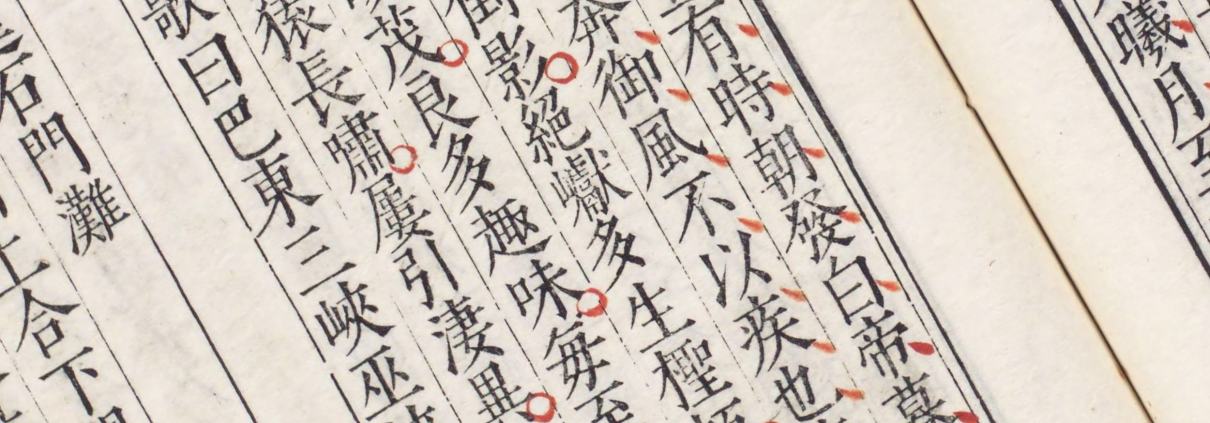 曦月
有時朝發白帝暮
奔御風不以疾也
影絕巘多生檉
茂良多趣味每至
猿長嘯屢引淒異
歌曰巴東三峽巫
石門灘
上合下